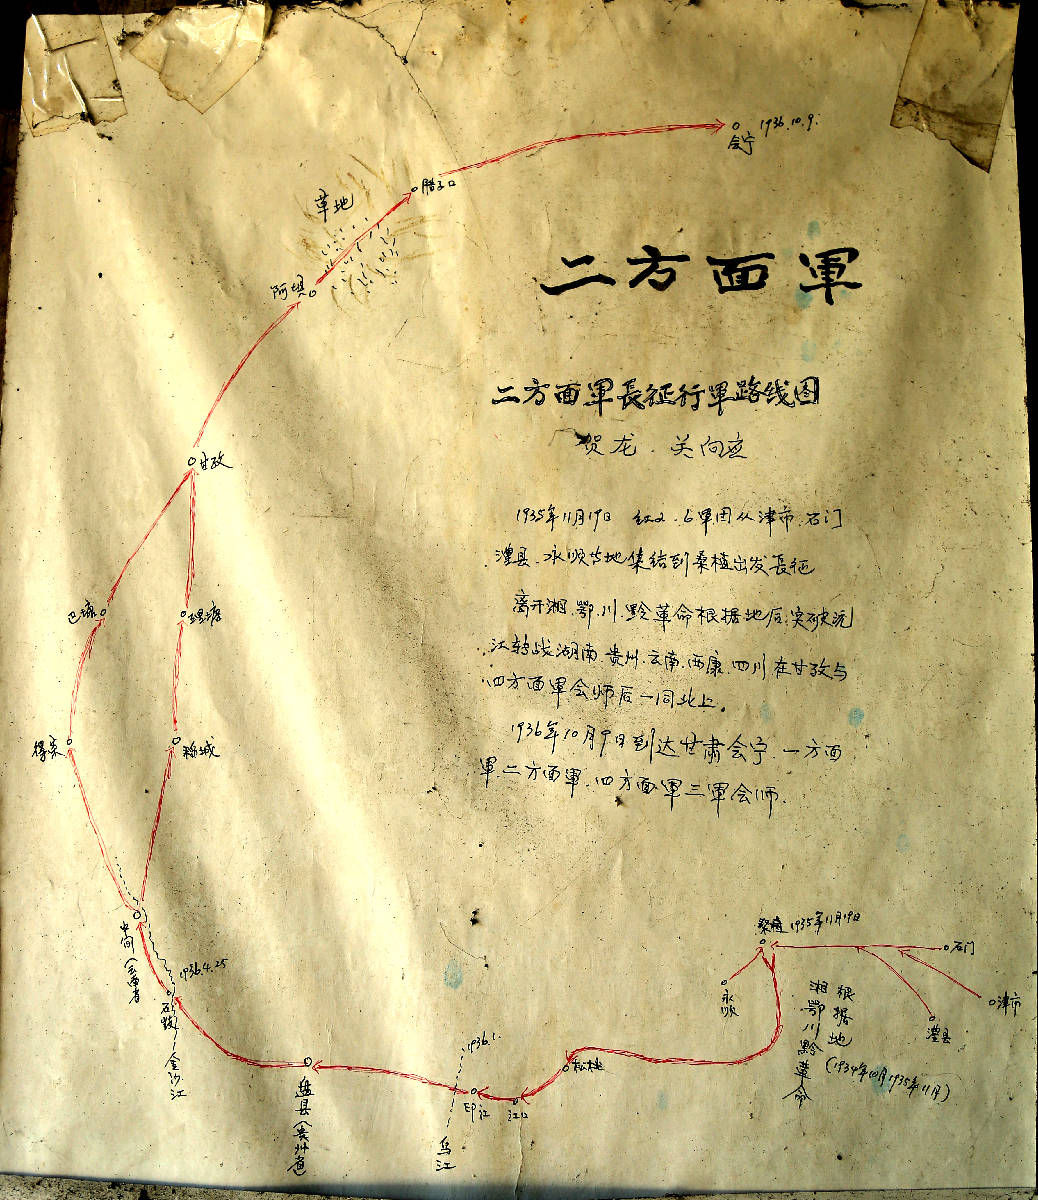 二方面軍
二方面軍長征行軍路线图
贺龙.关向应
1935年11月19日 红2.6军团从津市.石门
澧县.永顺等地集结到桑植出发長征
离开湘.鄂.川.黔革命根据地后突破沅
江转战湖南.贵州.云南.西康.四川在甘孜与
四方面軍会师后一同北上.
1936年10月9日到达甘肃会宁.一方面
軍二方面軍.四方面軍三軍会师.
会宁 1936.10.9.
腊子口
草地
阿坝
甘孜
巴塘
理塘
得荣
稻城
中甸(云南省
1936.4.25
石鼓
金沙江
盘县(贵州省
1936.1.
乌江
印江
江口
松桃
桑植 1935年11月19日
石门
津市
澧县
永顺
湘鄂川黔革命
根据地
(1934年10月1935年11月)